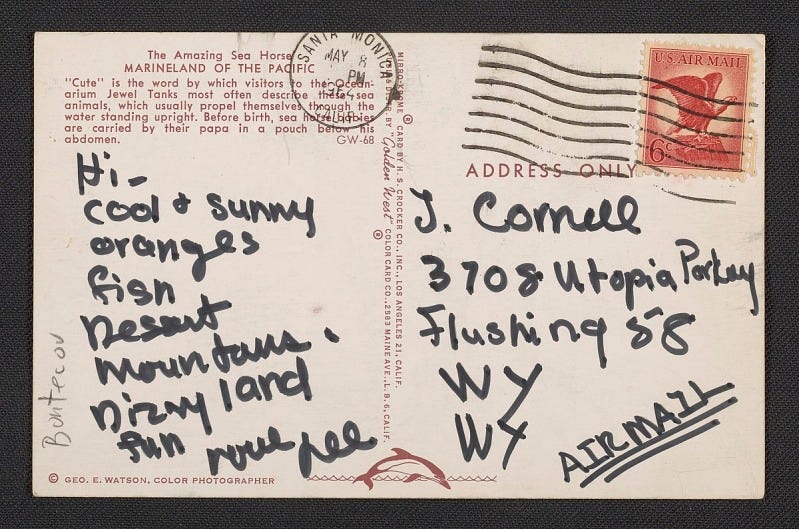 The Amazing Sea Horse
MARINELAND OF THE PACIFIC
"Cute" is the word by which visitors to the Ocean-
arium Jewel Tanks most often describe these sea
animals, which usually propel themselves through the
water standing upright. Before birth, sea horse babies
are carried by their papa in a pouch below his
abdomen.
GW-68
SANTA MONICA
MAY 8
PM
1964
CALIF.
MIRRO-KROME ® CARD BY H. S. CROCKER CO., INC., LOS ANGELES 21, CALIF.
BY "Golden West" ® COLOR CARD CO., 2583 MAINE AVE., L. B. 6, CALIF.
U.S. AIR MAIL
6c
ADDRESS ONLY
Hi-
cool + sunny
oranges
fish
Desert
mountains.
Dizny land
fun
Bontecou
J. Cornell
3708 Utopia Parkway
Flushing 58
NY
NY
AIRMAIL
© GEO. E. WATSON, COLOR PHOTOGRAPHER